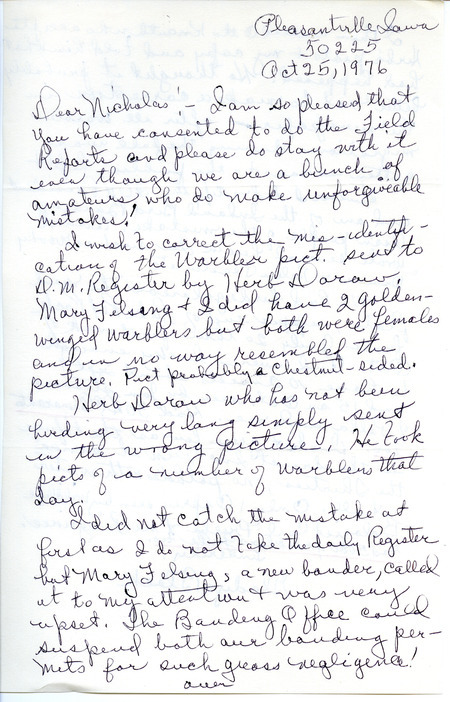 Pleasantville Iowa
50225
Oct 25, 1976
Dear Nicholas:- I am so pleased that
you have consented to do the Field
Reports and please do stay with it
even though we are a bunch of
amateurs who do make unforgivable
mistakes!
I wish to correct the mis-identifi-
cation of the Warbler pict. sent to
D.M. Register by Herb Dorow.
Mary Felsing & I did have 2 golden-
winged warblers but both were females
and in no way resembled the
picture. Pict probably a chestnut-sided.
Herb Dorow who has not been
birding very long simply sent
in the wrong picture. He took
picts of a number of warblers that
day.
I did not catch the mistake at
first as I do not take the daily Register
but Mary Felsing, a new bander, called
it to my attention & was very
upset. The Banding Office could
suspend both our banding per-
mits for such gross negligence!
over